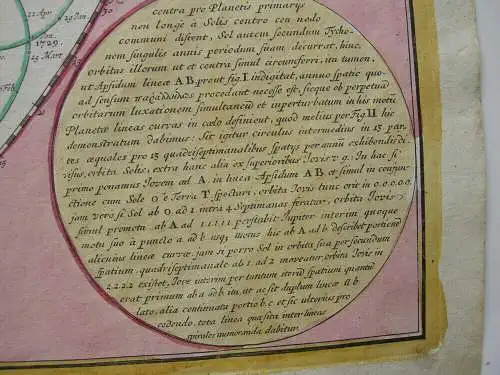 1729.
29 Mart
25 A
contra pro Planetis primarys
non longè à Solis centro con nodo
communi distent, Sol autem secundum Tycho-
nem singulis annis periodum suam decurrat, hinc
orbitas illorum ut et contra simul circumferri, ita tamen,
ut Apsidum linea AB, prout fig. I. indigitat, annuo spatio quo-
ad sensum procedant necesse est, sicque ob perpetuam
orbitarum luxationem simultaneam et inperturbatum in his motu
Planetæ lineas curvas in cœlo definient, quod melius per Fig. II hic
demonstratum dabimus. Sit igitur circulus intermedius in 13 par-
tes æquales pro 13 quadriseptimanalibus spatys per annu exhibendis di-
visus, orbita Solis, extra hanc alia ex superioribus Iovis v. g. In hac si
primo penamus Iovem ad A. in linea Apsidum AB et simul in conjun-
ctione cum Sole O è Terra T. spectari, orbita Iovis tunc erit in 0.0.0.0.0.
jam vero si Sol ab 0. ad 1 intra 4 Septimanas feratur, orbita Iovis
simul promota ab A. ad 1.1.1.1.1. perstabit Iupiter interim quoque
motu suo à puncto a ad b. usque motus hic ab A ad b. describet portionem
alicuius lineæ curvæ. jam si perro Sol in orbita sua per secundum
spatium quadriseptimanale ab 1. ad 2 moveatur orbita Iovis in
2.2.2.2 exibet, Iove interim per tantum iterum spatium quantum
erat primum ab a ad b. itu, ut ac sit duplum lineæ a b.
alia continuata portio b. c. et sic ulterius pro
cedendo. tota linea quæsita inter lineas
spirales numeranda dabitur.